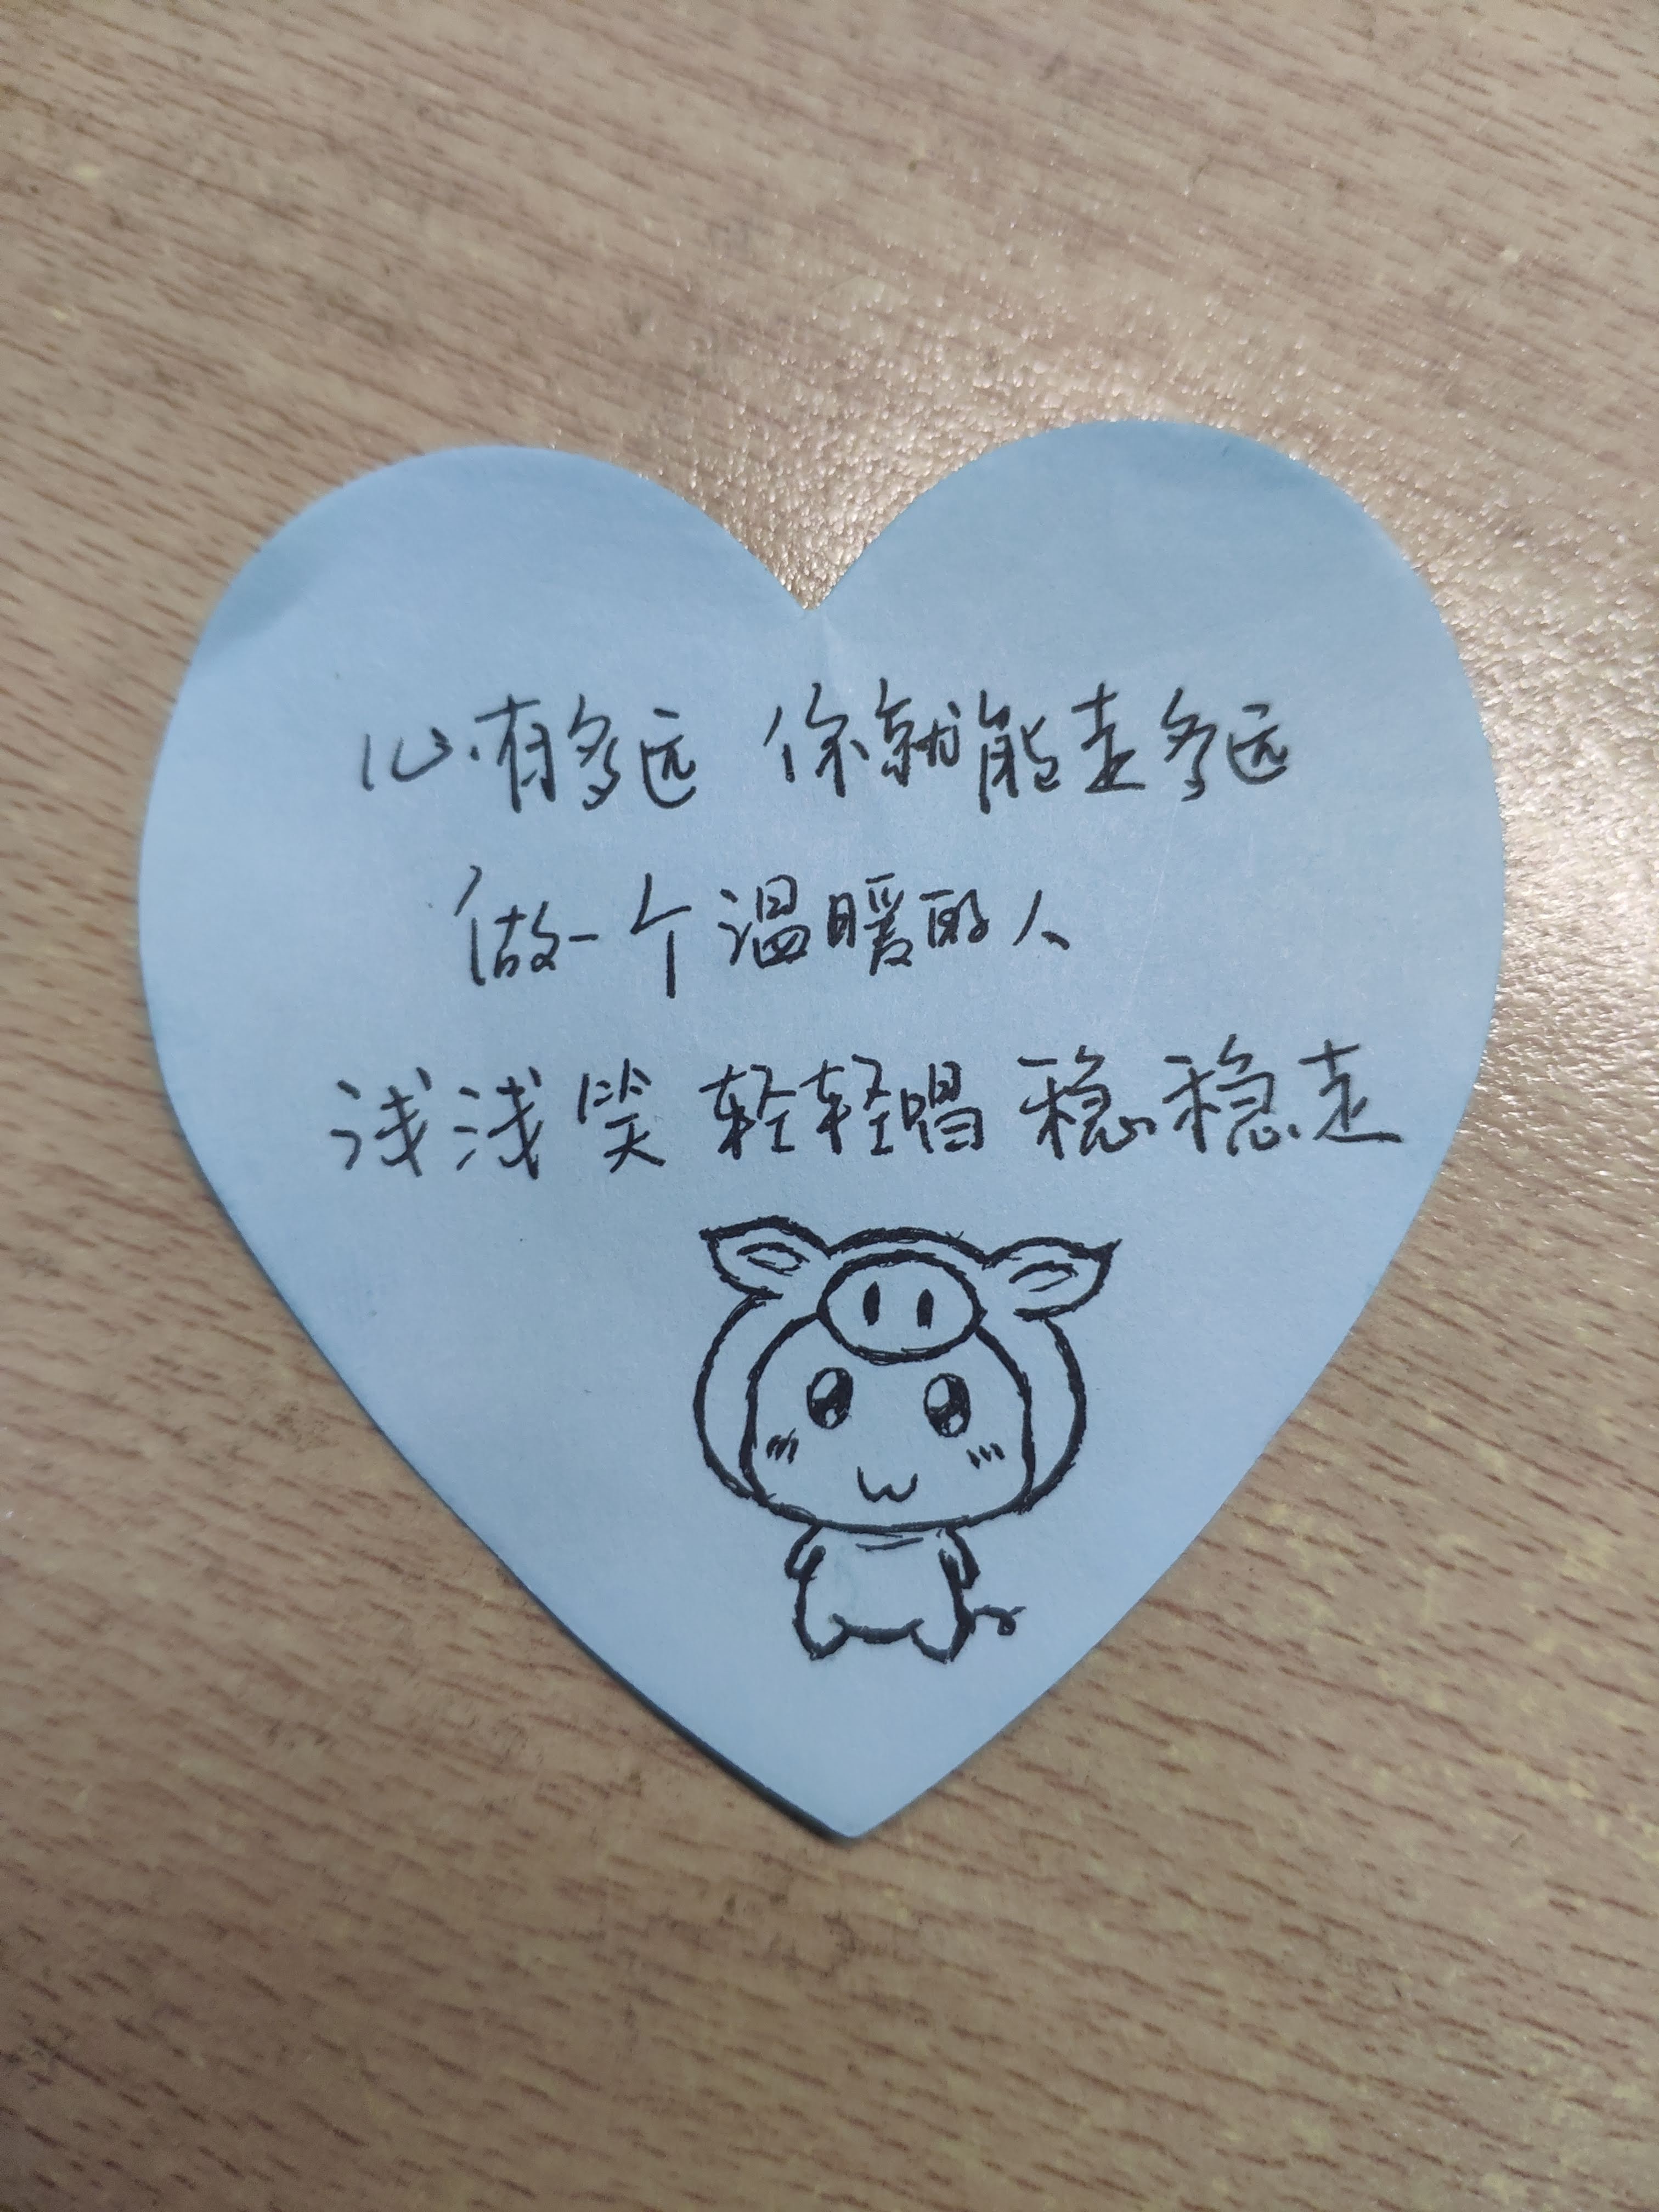 心有多远 你就能走多远
做一个温暖的人
浅浅笑 轻轻唱 稳稳走